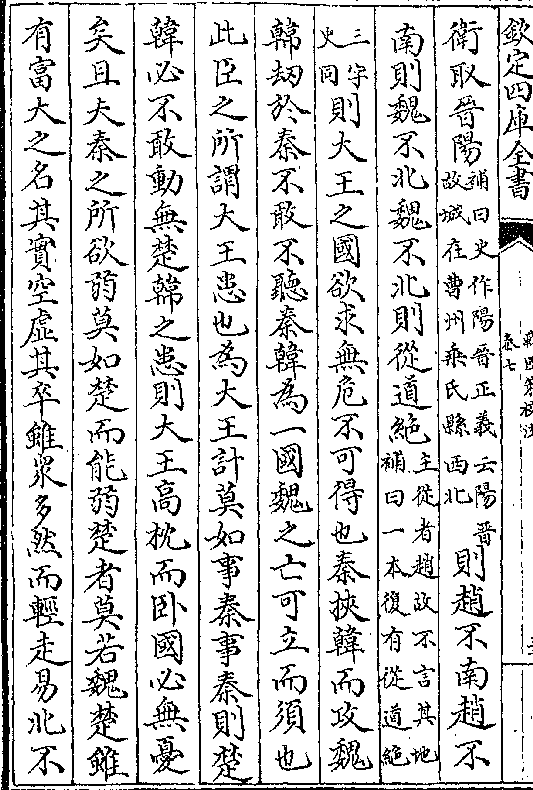 欽定四庫全書
戰國策校注
卷七
衛取晉陽補曰史作陽晉正義云陽晉故城在曹州乘氏縣西北則趙不南趙不
南則魏不北魏不北則從道絶主從者趙故不言其地補曰一本復有從道絶
三字史同則大王之國欲求無危不可得也秦挾韓而攻魏
韓刼於秦不敢不聽秦韓為一國魏之亡可立而須也
此臣之所謂大王患也為大王計莫如事秦事秦則楚
韓必不敢動無楚韓之患則大王高枕而卧國必無憂
矣且夫秦之所欲弱莫如楚而能弱楚者莫若魏楚雖
有富大之名其實空虛其卒雖衆多然而輕走易北不